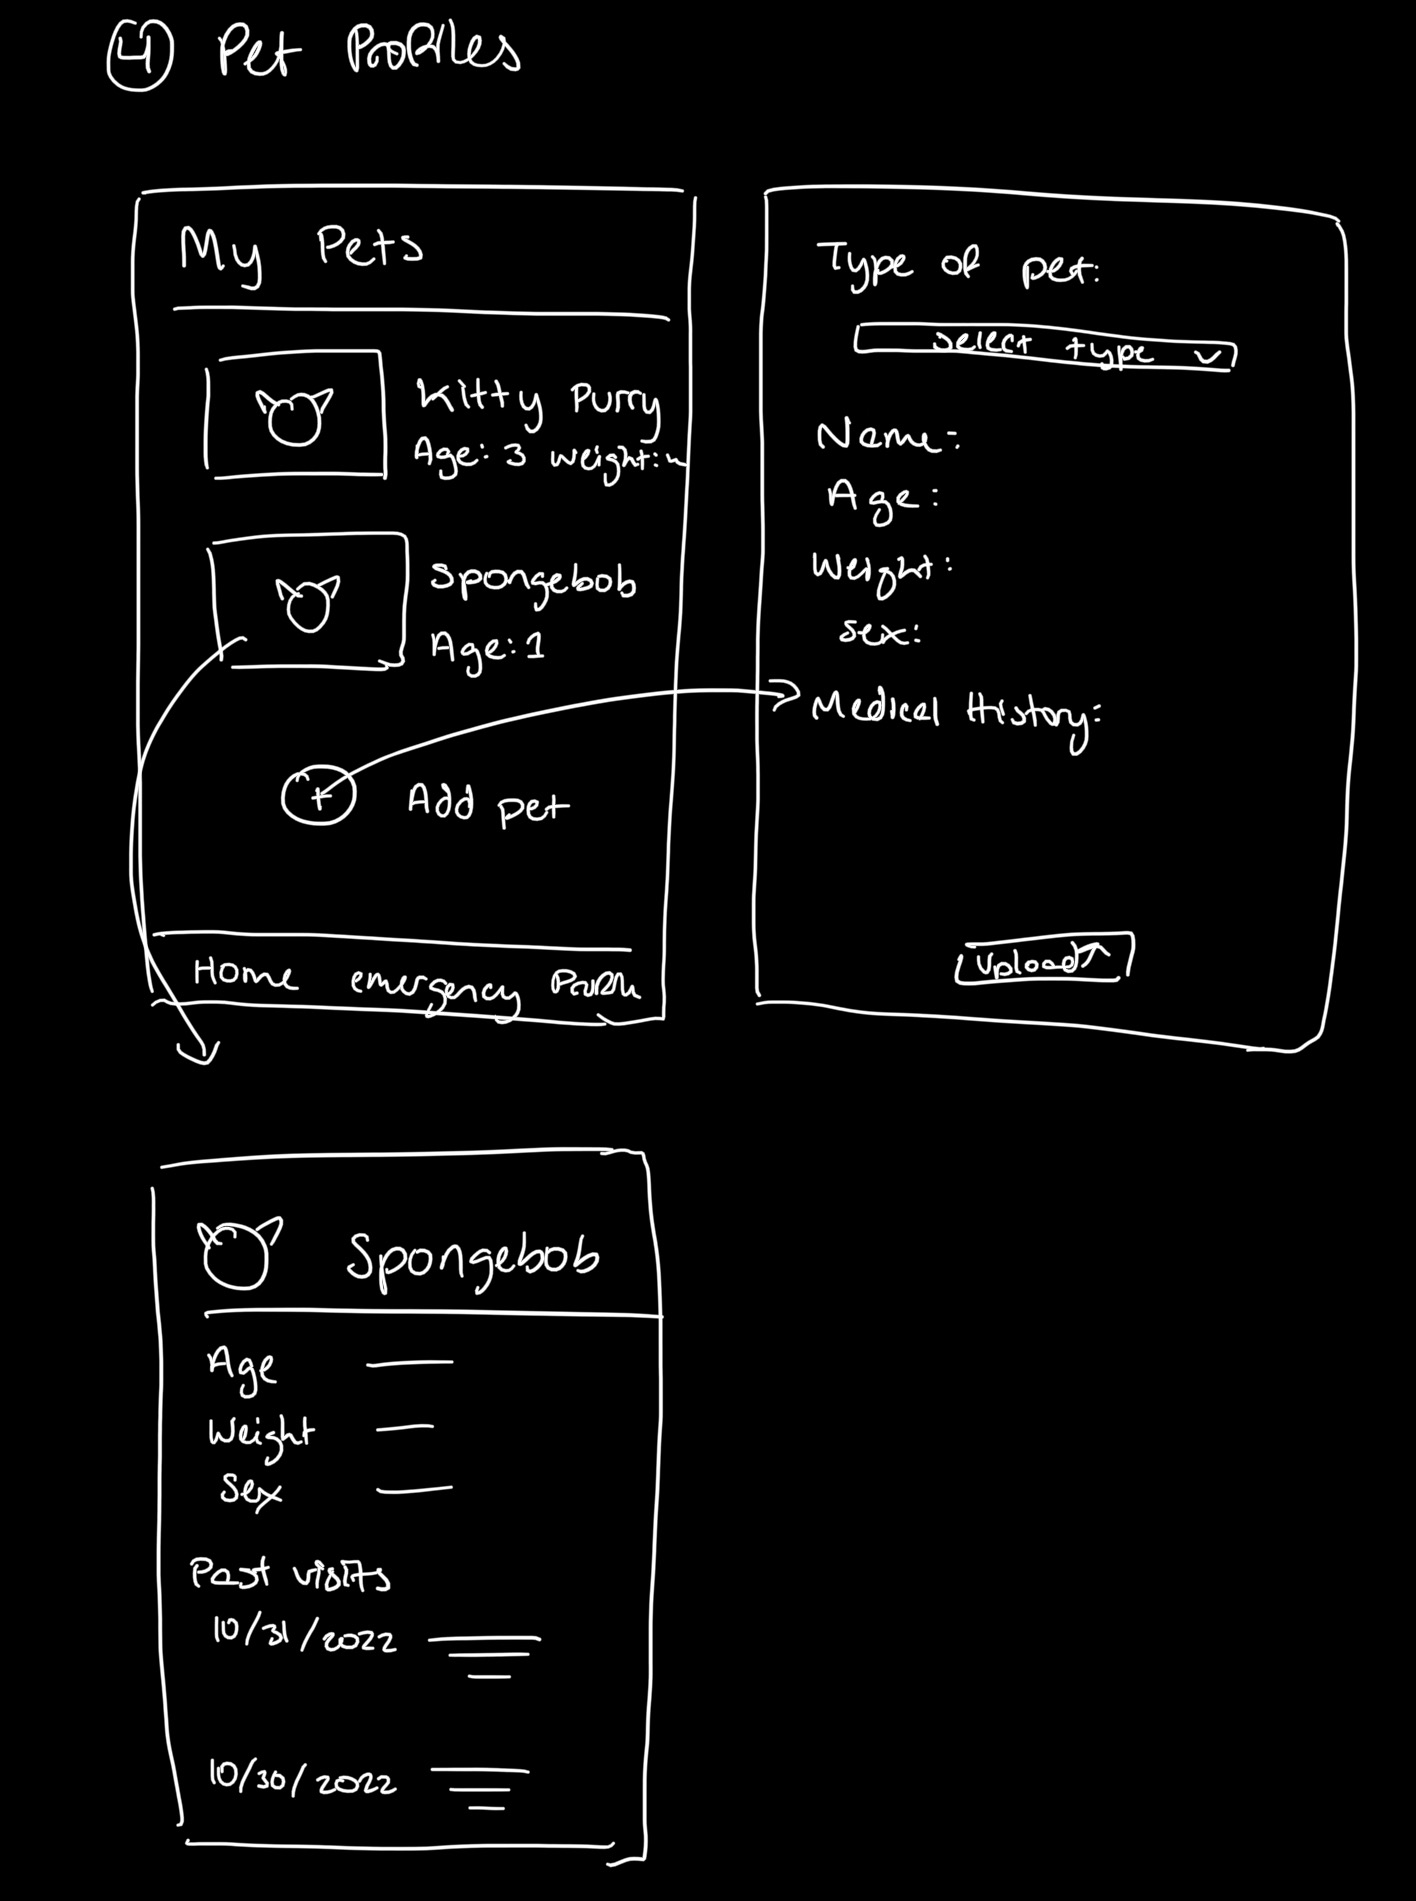 4 Pet Profiles
My Pets
Kitty Purry
Age: 3 weight:
Spongebob
Age: 1
+ Add pet
Home emergency
Type of pet:
select type
Name:
Age:
Weight:
Sex:
Medical History:
Upload
Spongebob
Age
Weight
Sex
Past visits
10/31/2022
10/30/2022